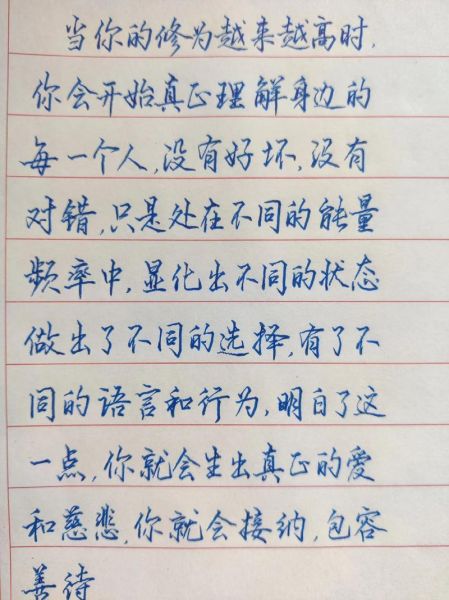 当你的修为越来越高时,
你会开始真正理解身边的
每一个人,没有好坏,没有
对错,只是处在不同的能量
频率中,显化出不同的状态
做出了不同的选择,有了不
同的语言和行为,明白了这
一点,你就会生出真正的爱
和慈悲,你就会接纳,包容
善待